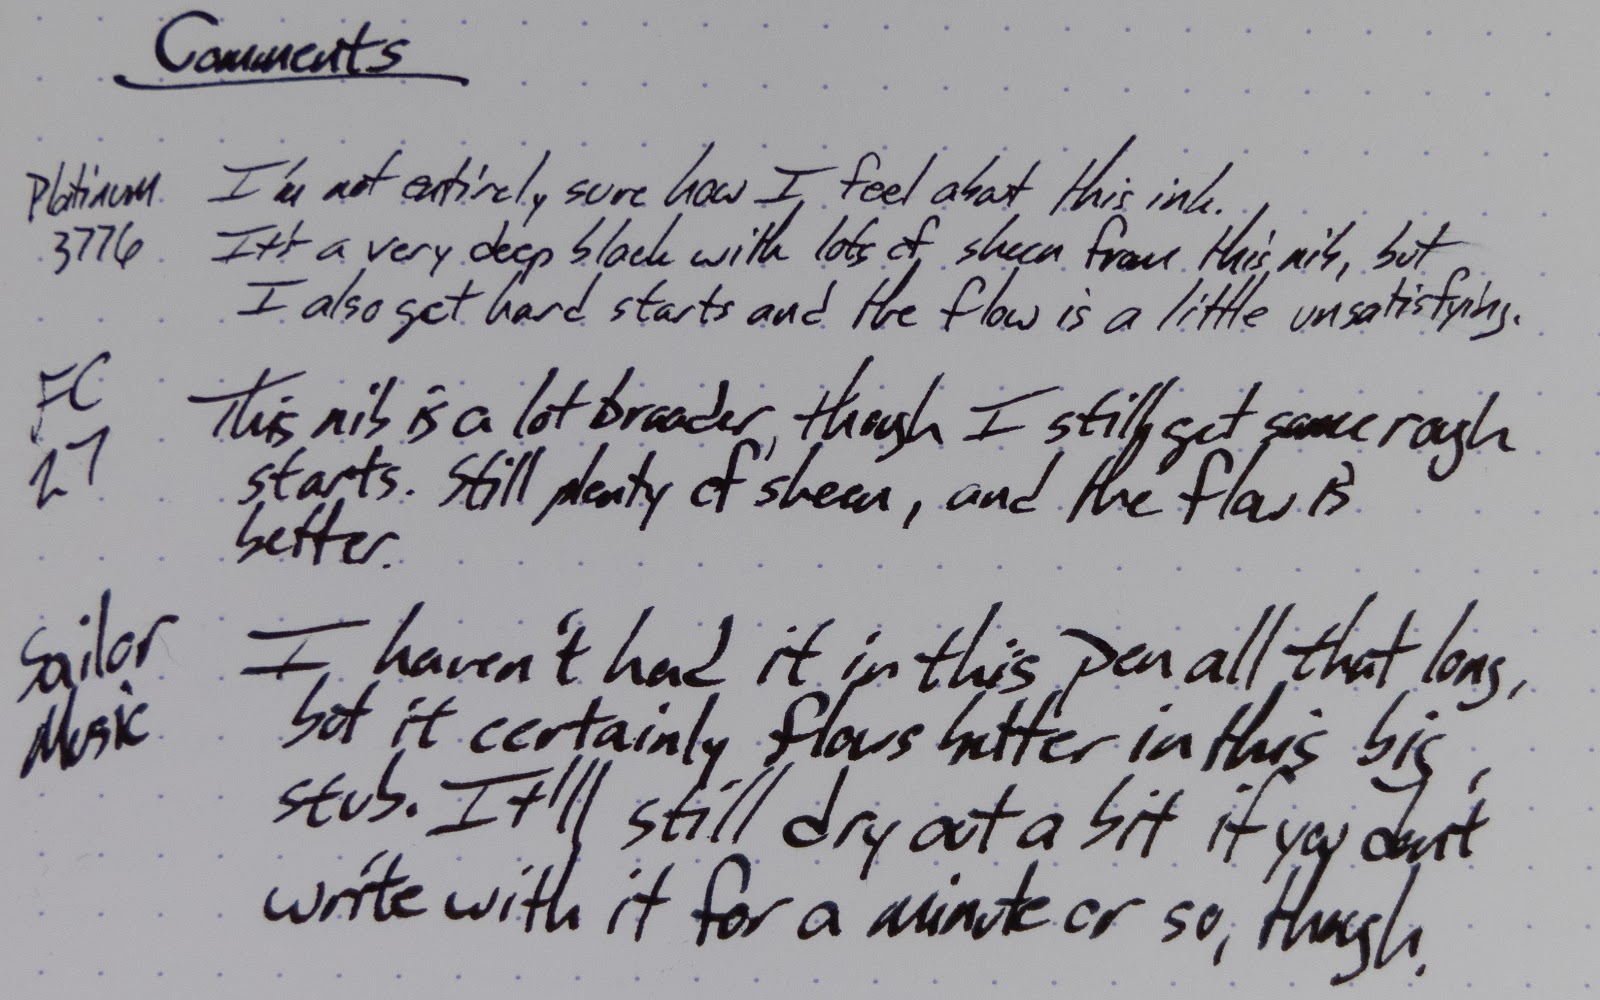 Comments
Platinum I'm not entirely sure how I feel about this ink.
3776 It's a very deep black with lots of sheen from this nib, but
I also get hard starts and the flow is a little unsatisfying.
FC This nib is a lot broader, though I still get some rough
27 starts. Still plenty of sheen, and the flow is
better.
Sailor I haven't had it in this pen all that long,
Music but it certainly flows better in this big
stub. It'll still dry out a bit if you don't
write with it for a minute or so, though.